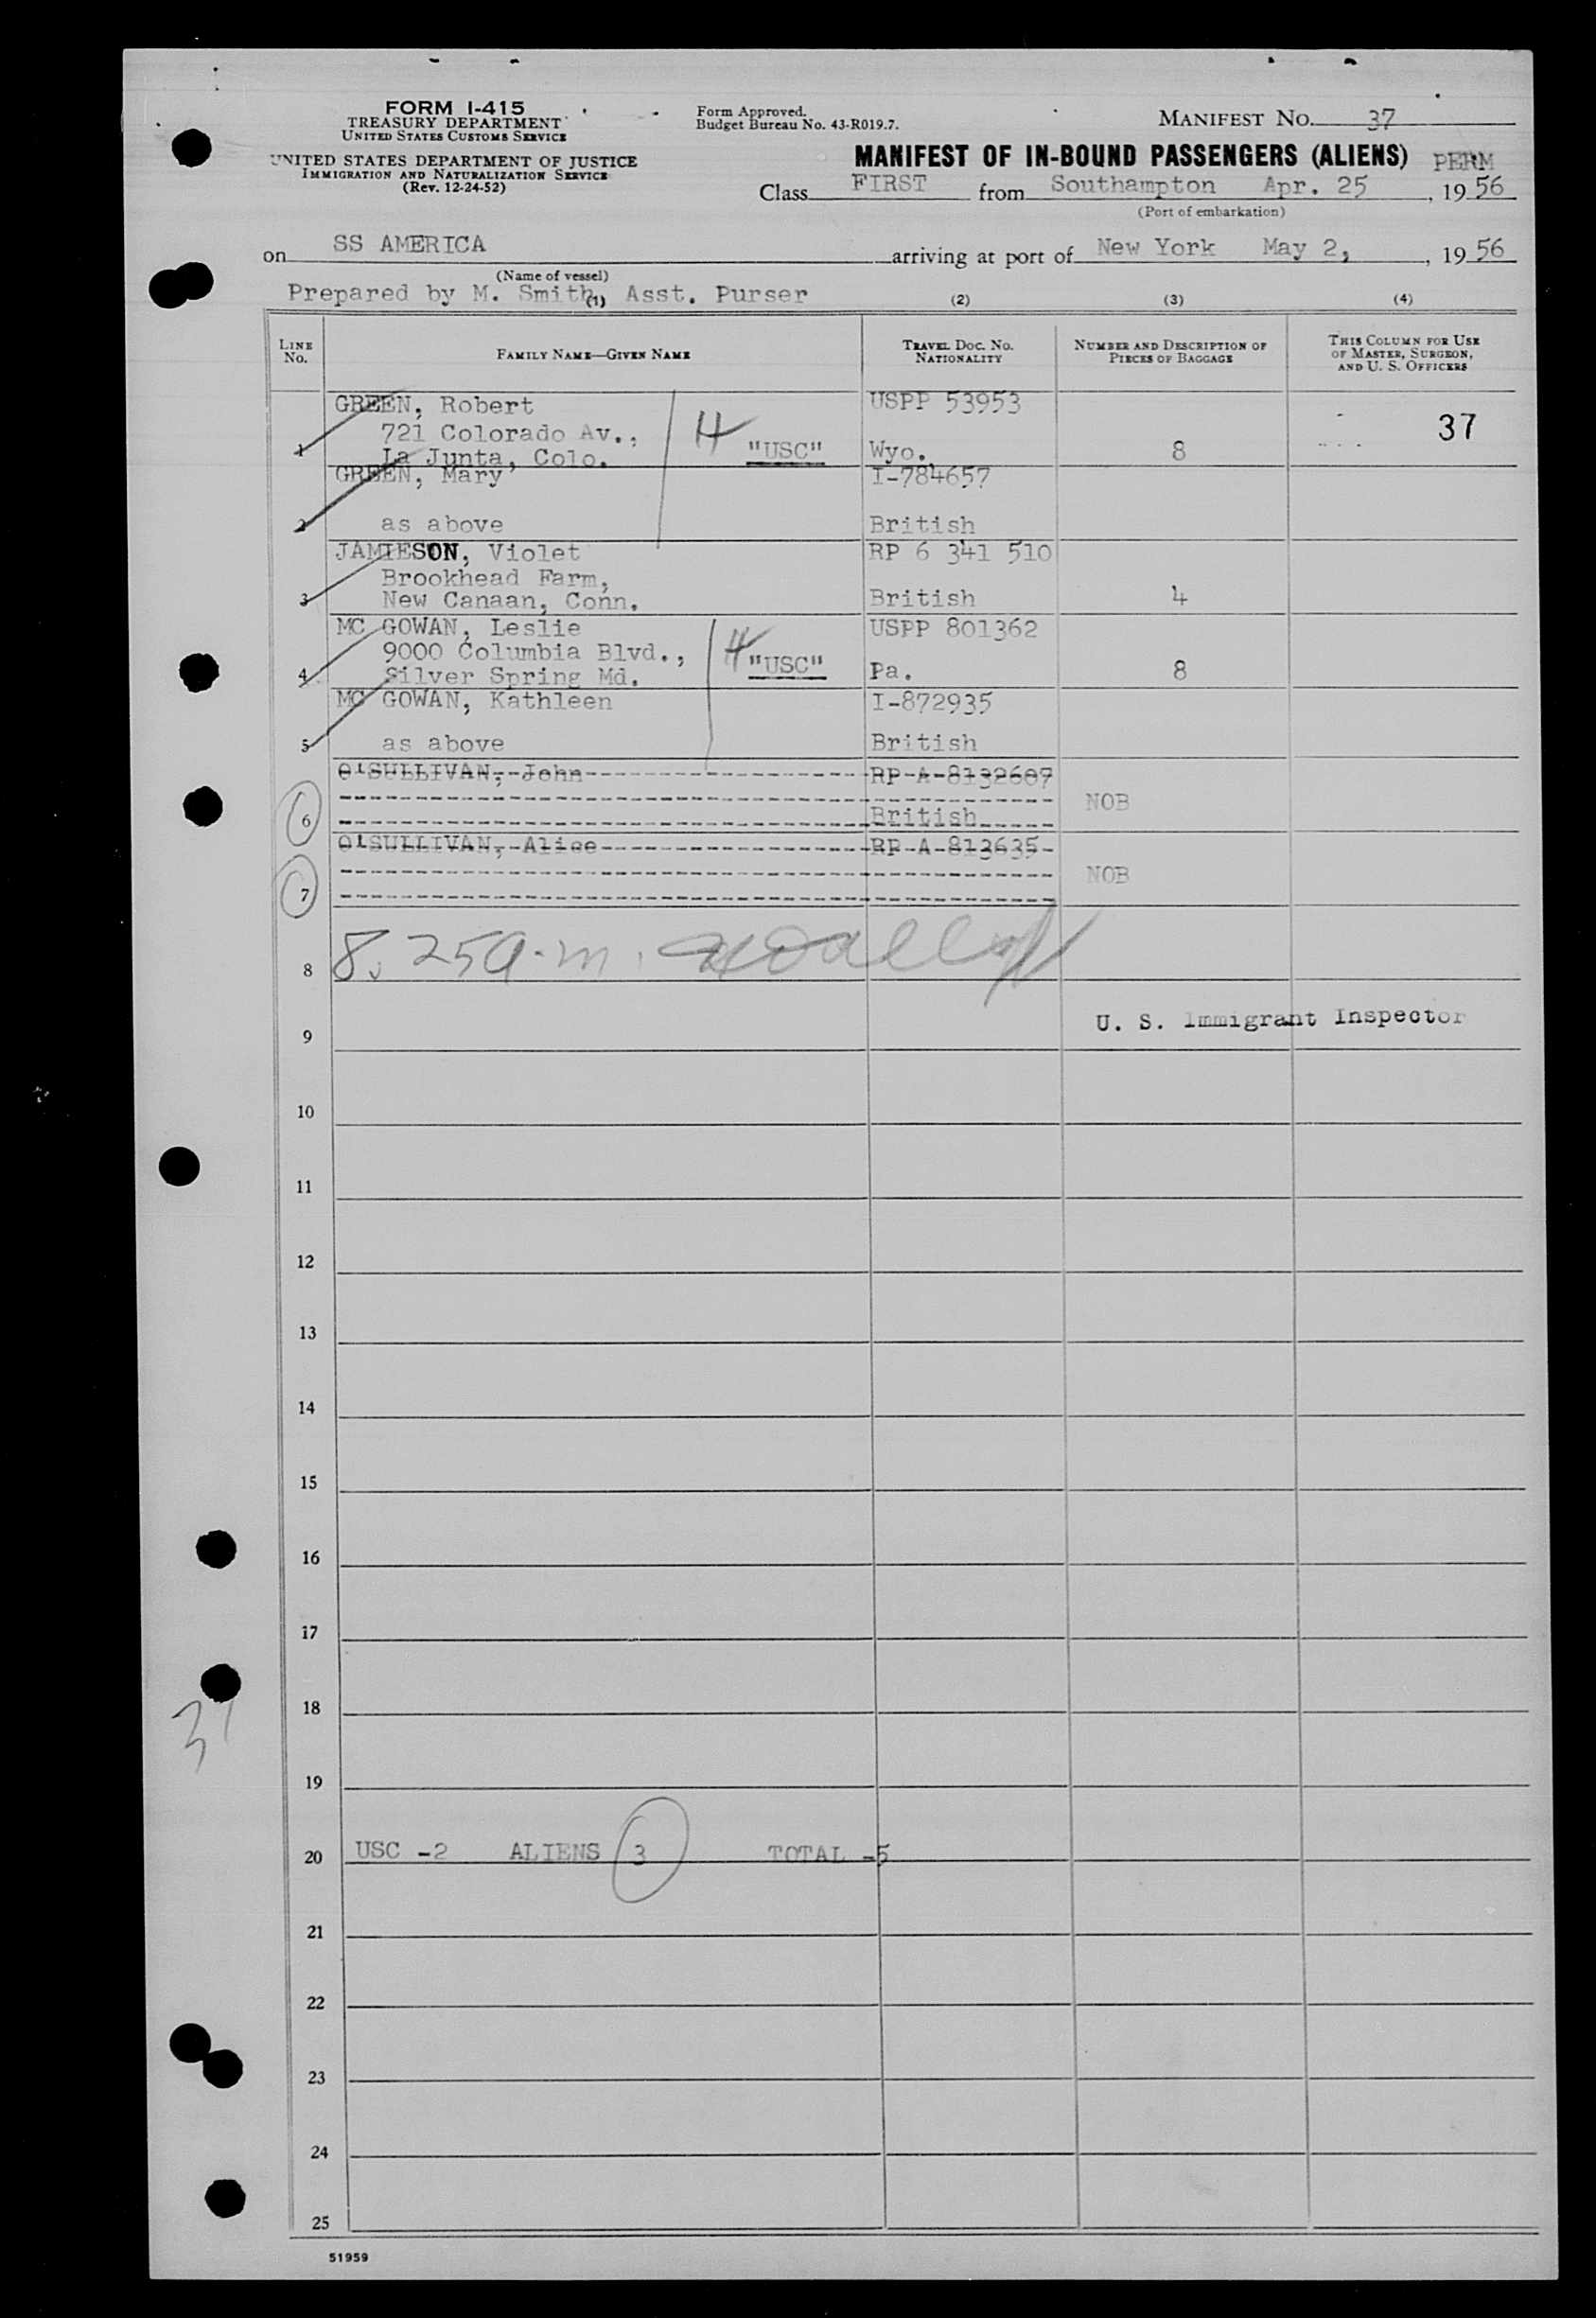 FORM I-415
TREASURY DEPARTMENT
UNITED STATES CUSTOMS SERVICE
UNITED STATES DEPARTMENT OF JUSTICE
IMMIGRATION AND NATURALIZATION SERVICE
(Rev. 12-24-52)
Form Approved.
Budget Bureau No. 43-R019.7.
MANIFEST NO. 37
MANIFEST OF IN-BOUND PASSENGERS (ALIENS) PERM
Class FIRST from Southampton Apr. 25, 1956
(Port of embarkation)
on SS AMERICA arriving at port of New York May 2, , 1956
(Name of vessel)
Prepared by M. Smith, Asst. Purser
(1) (2) (3) (4)
LINE No.
FAMILY NAME—GIVEN NAME
TRAVEL DOC. NO. NATIONALITY
NUMBER AND DESCRIPTION OF PIECES OF BAGGAGE
THIS COLUMN FOR USE OF MASTER, SURGEON, AND U. S. OFFICERS
GREEN, Robert USPP 53953
721 Colorado Av., H 37
1 La Junta, Colo. "USC" Wyo. 8
GREEN, Mary I-784657
2 as above British
JAMIESON, Violet RP 6 341 510
Brookhead Farm,
3 New Canaan, Conn. British 4
MC GOWAN, Leslie USPP 801362
9000 Columbia Blvd., H
4 Silver Spring Md. "USC" Pa. 8
MC GOWAN, Kathleen I-872935
5 as above British
O'SULLIVAN, John RP A 8132607
6 British NOB
O'SULLIVAN, Alice RP A 813635
7 NOB
8 8.25 a.m.
U. S. Immigrant Inspector
9
10
11
12
13
14
15
16
17
18
19
20 USC -2 ALIENS 3 TOTAL -5
21
22
23
24
25
51959